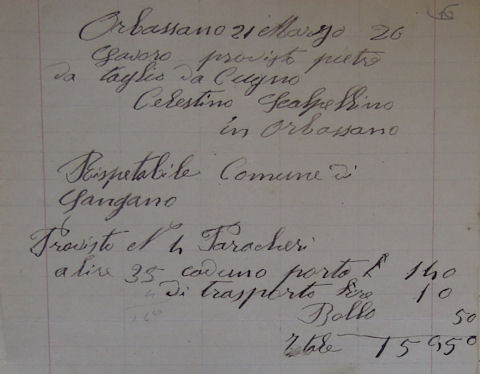 Orbassano 21 Marzo 26
Lavoro provisto pietre
da taglio da Cugno
Celestino Scalpellino
in Orbassano
Rispetabile Comune di
Gangano
Provisto N 4 Paracheri
a lire 35 caduno porto L 140
4
140
di trasporto Lire 10
Bollo 50
Totale 150,50